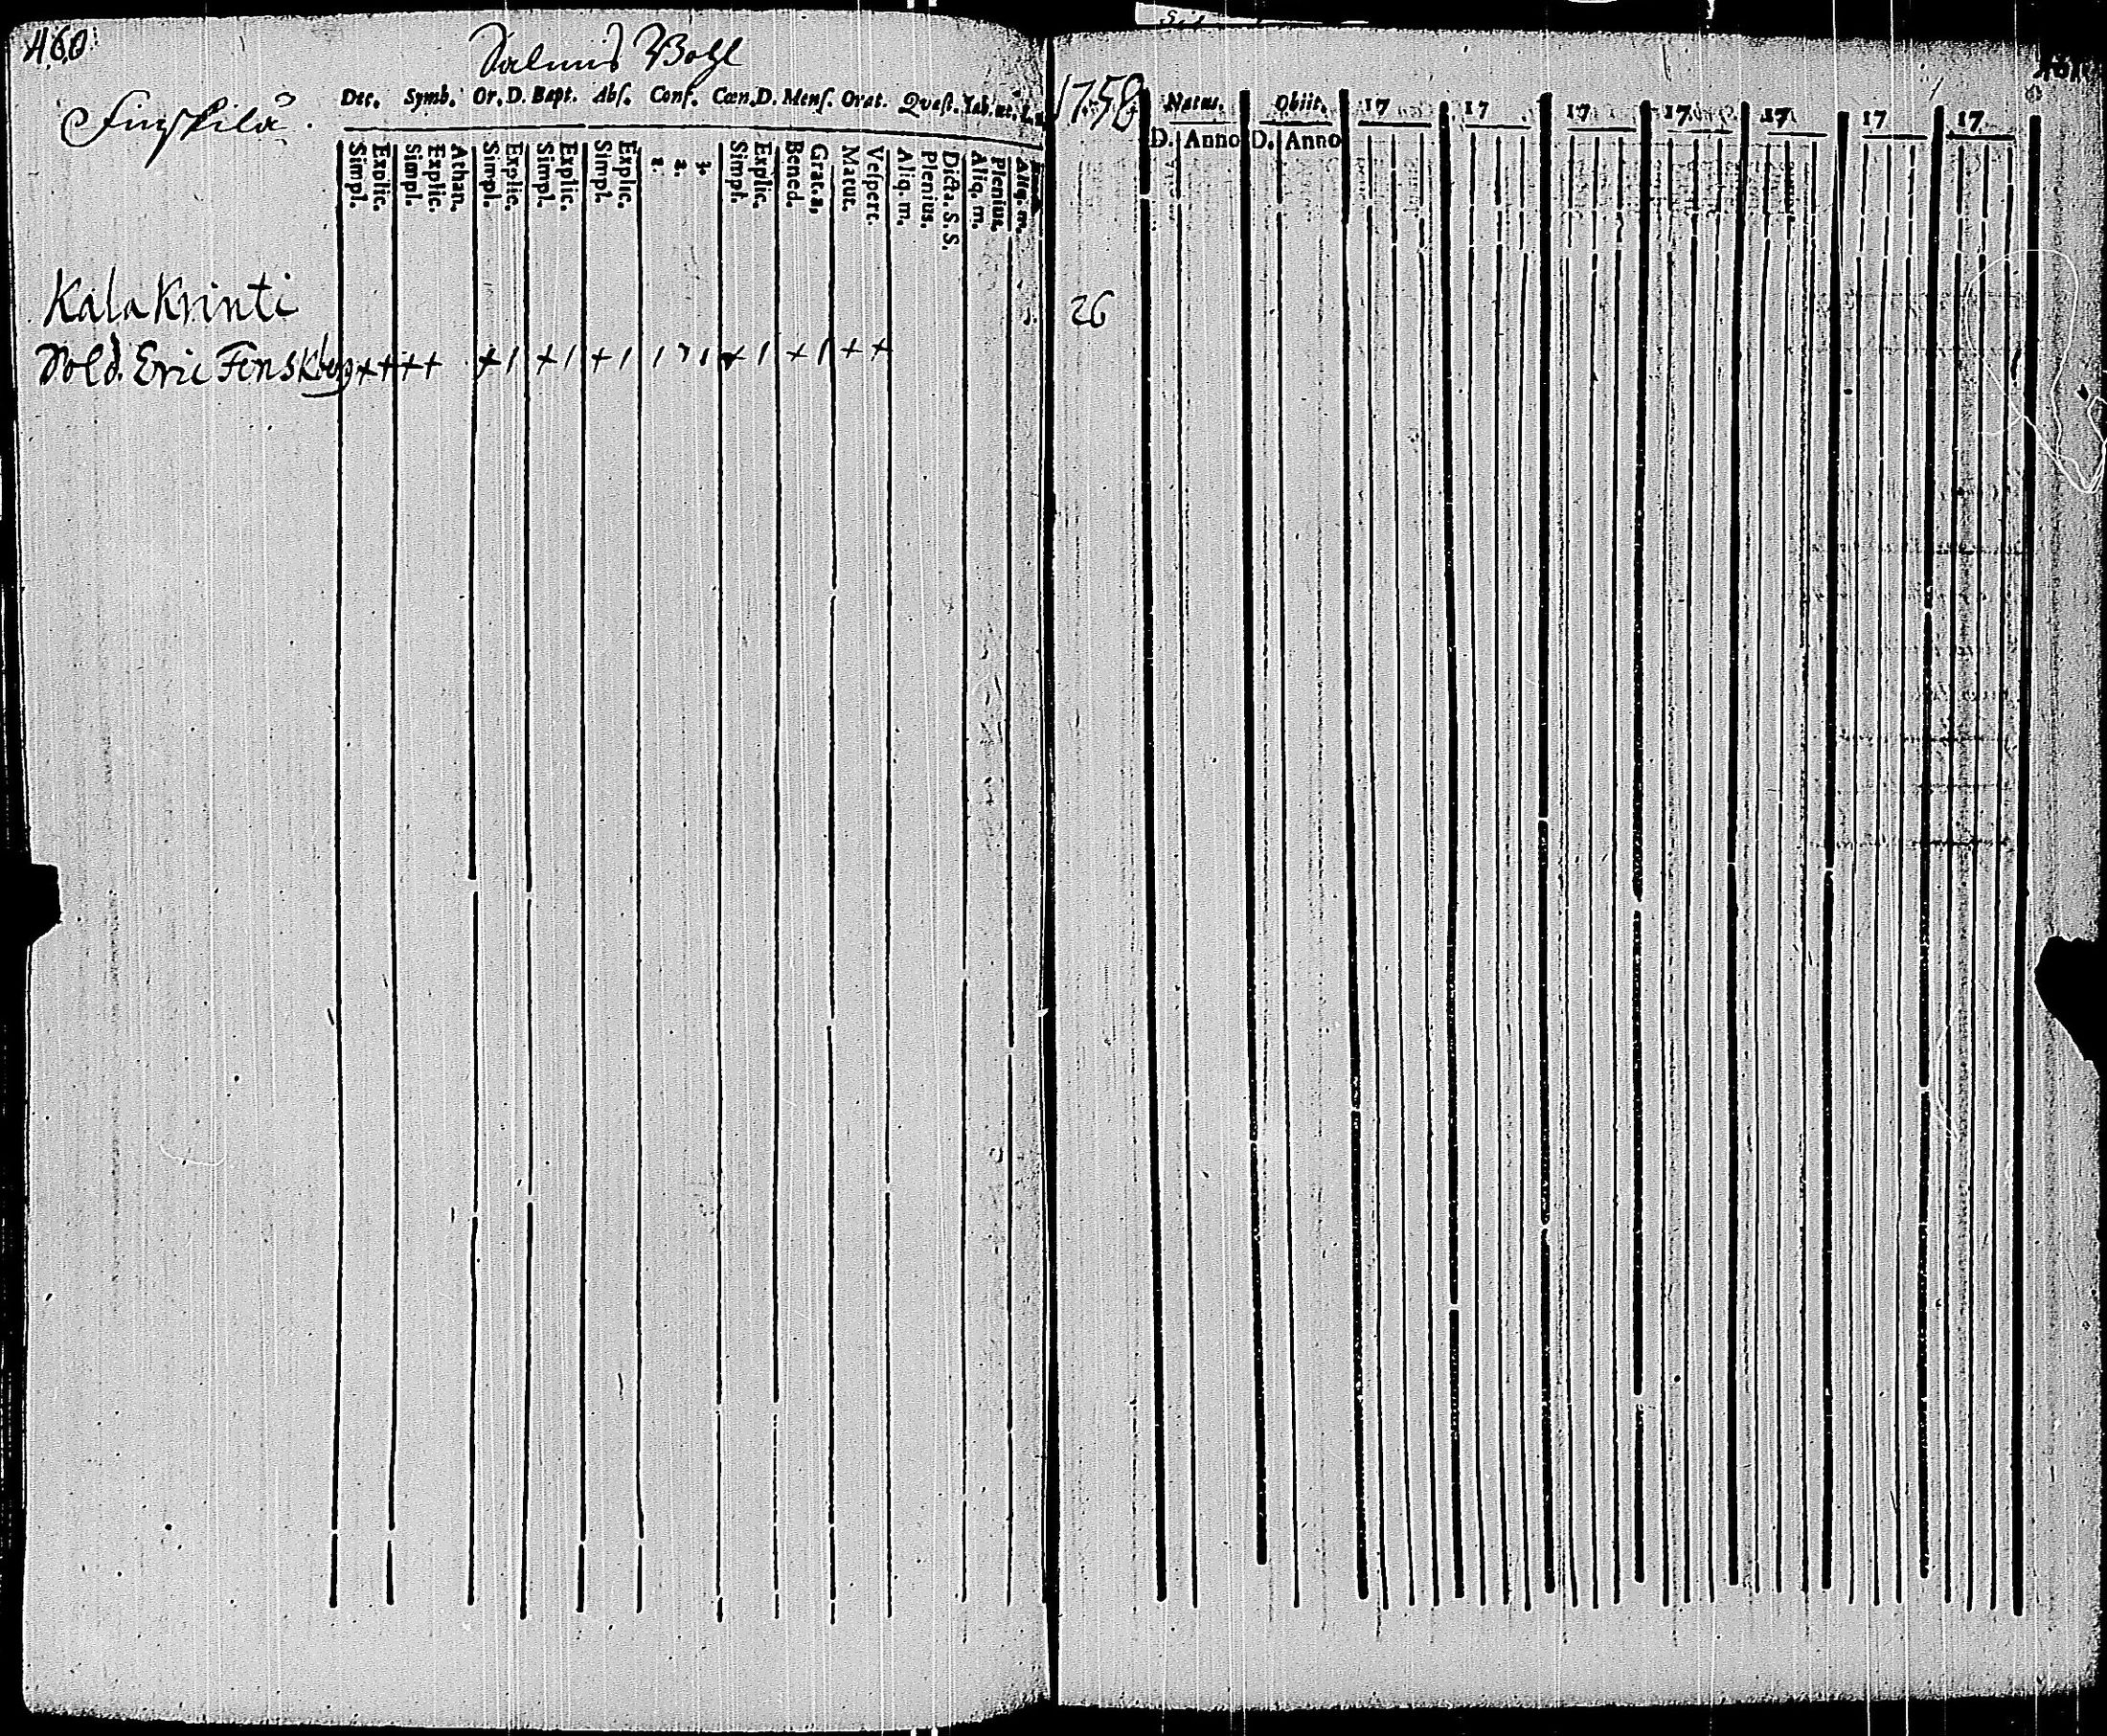 460
Salmis Bohl
Dec. Symb. Or. D. Bapt. Abſ. Conf. Cœn. D. Menſ. Orat. Quæſt.
Simpl. Explic. Simpl. Explic. Athan. Simpl. Explic. Simpl. Explic. Simpl. Explic. 1. 2. 3. Simpl. Explic. Bened. Grat. a, Matut. Veſpert. Aliq. m. Plenius. Dicta. S. S. Aliq. m. Plenius. Aliq. m.
Kalakrinti
Sold. Eric Fenskberg + + + + + 1 + 1 + 1 1 1 1 + 1 + 1 + +
1758
Natus. Obiit. 17 17 17 17 17 17 17
D. Anno D. Anno
26